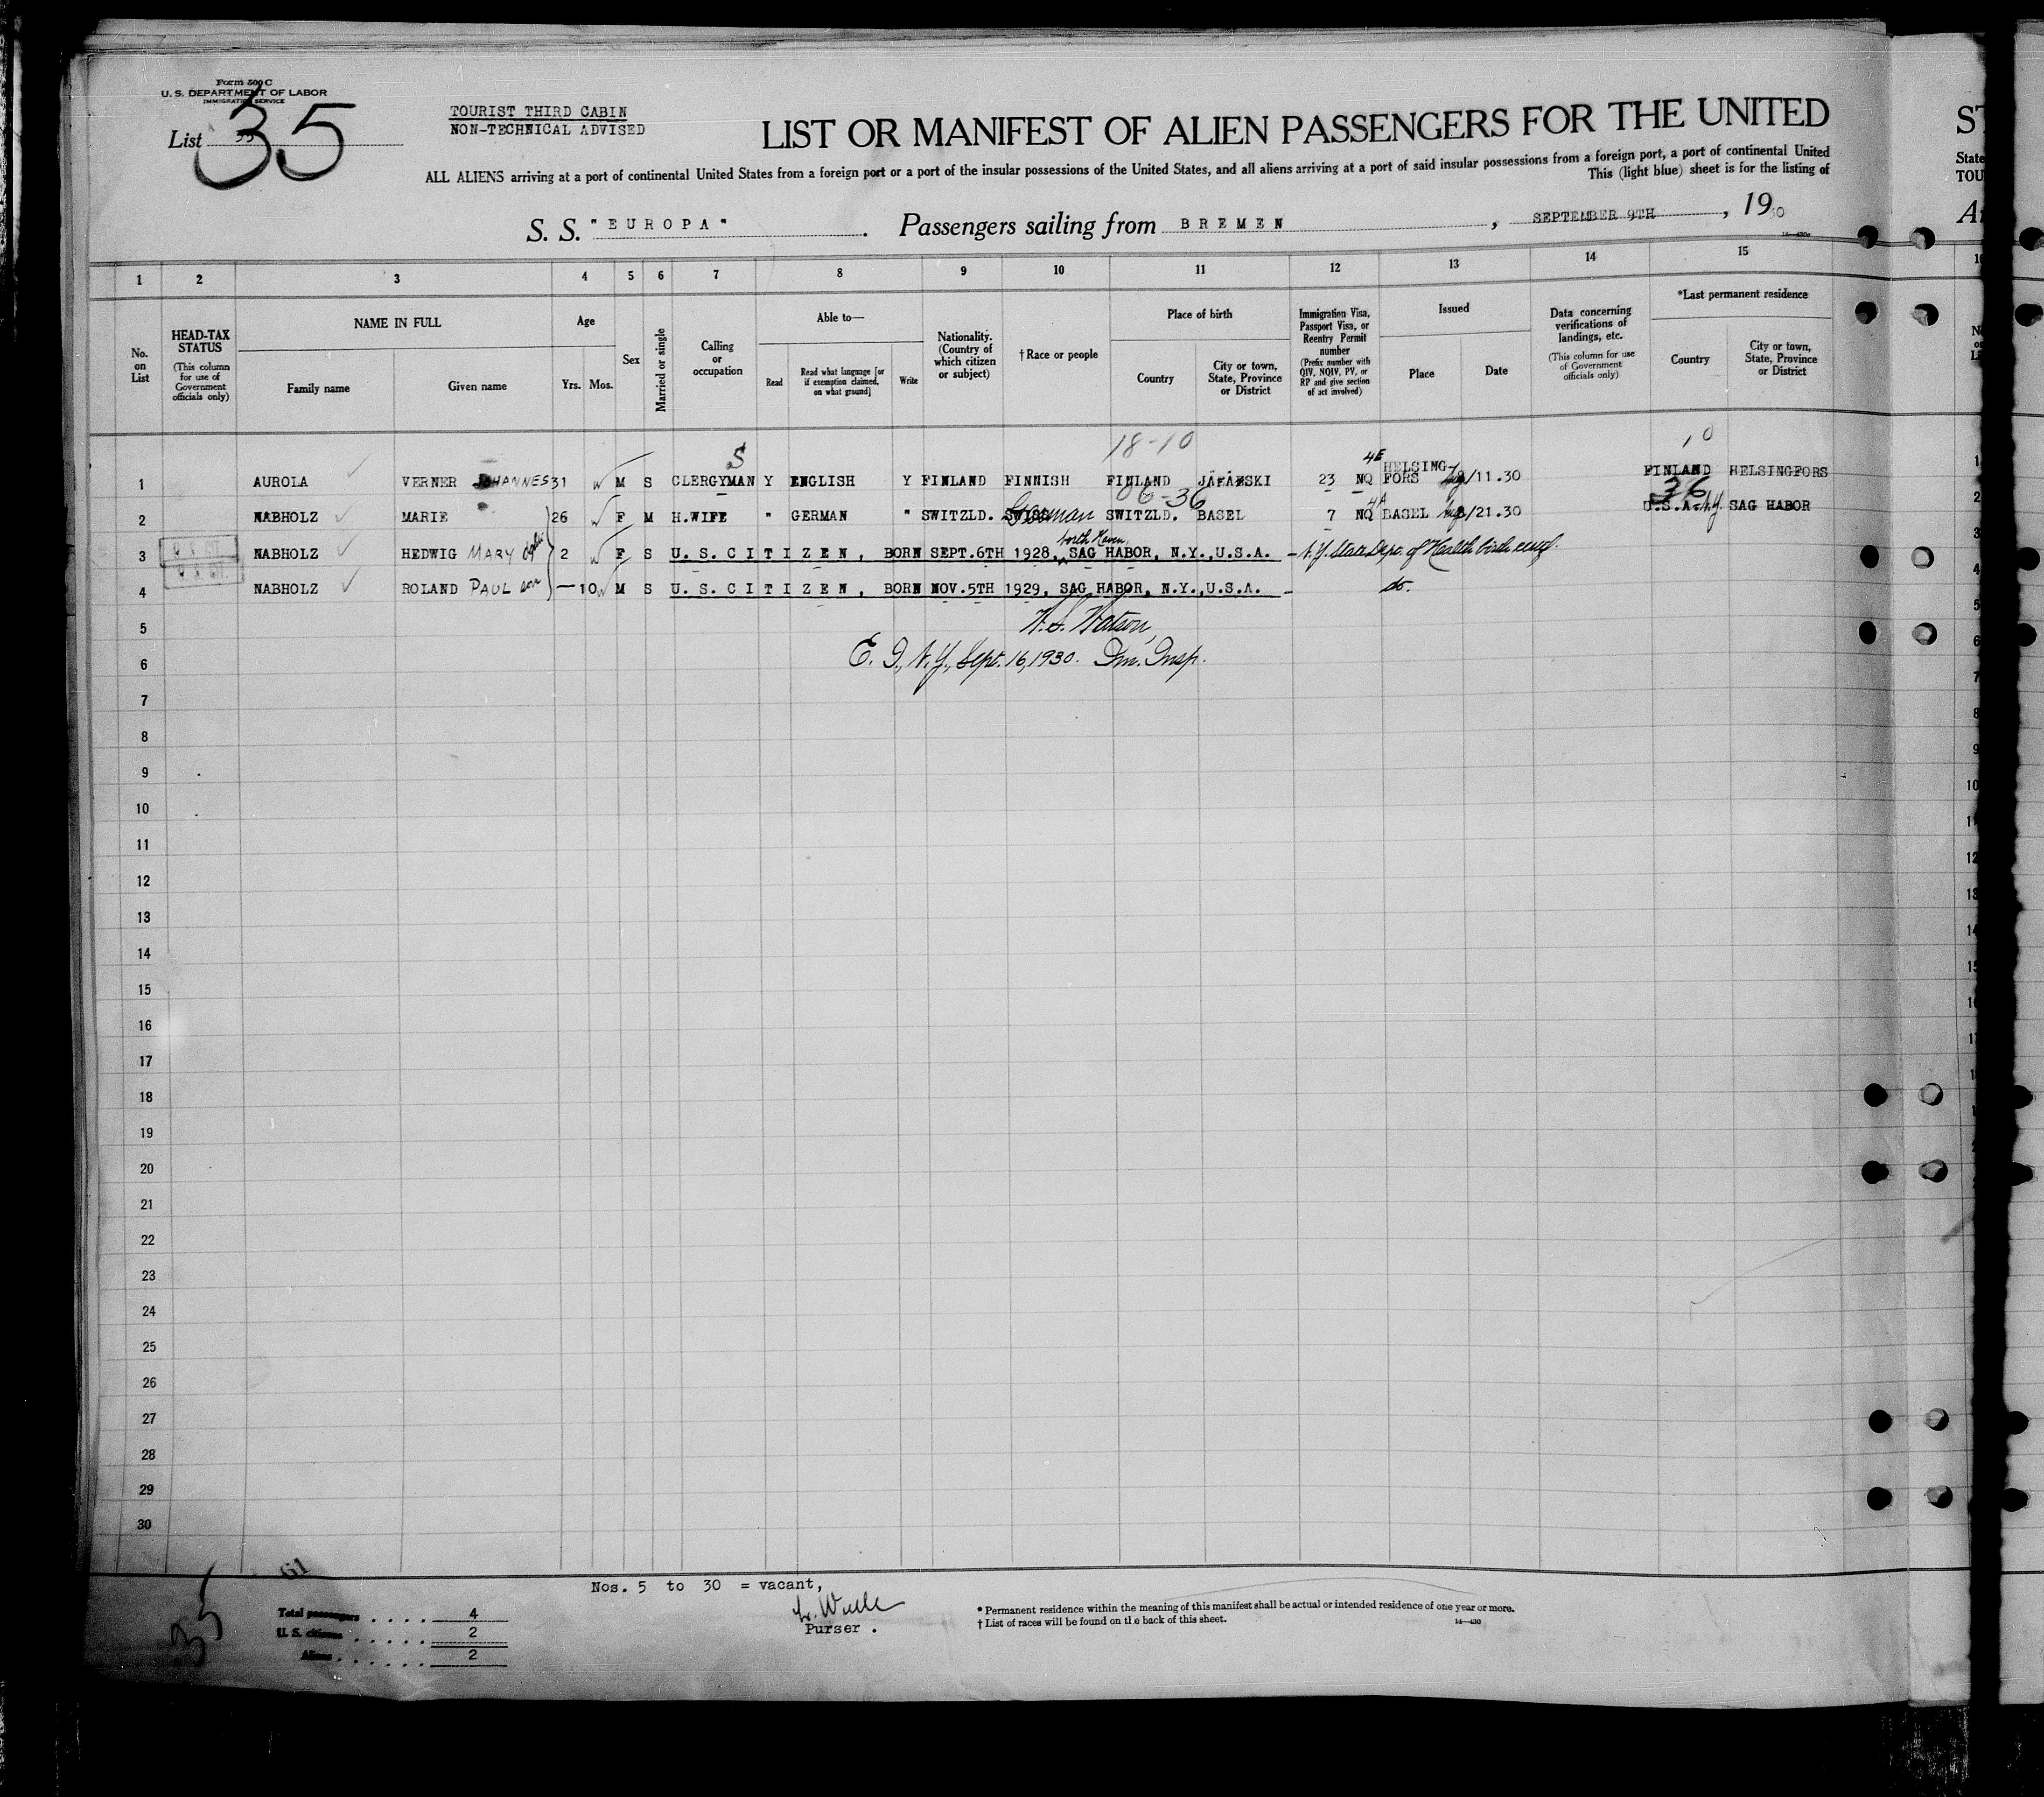 Form 500 C
U. S. DEPARTMENT OF LABOR
IMMIGRATION SERVICE
List 35
35
TOURIST THIRD CABIN
NON-TECHNICAL ADVISED
LIST OR MANIFEST OF ALIEN PASSENGERS FOR THE UNITED
ALL ALIENS arriving at a port of continental United States from a foreign port or a port of the insular possessions of the United States, and all aliens arriving at a port of said insular possessions from a foreign port, a port of continental United
This (light blue) sheet is for the listing of
S. S. "EUROPA". Passengers sailing from BREMEN, SEPTEMBER 9TH, 1930
1 2 3 4 5 6 7 8 9 10 11 12 13 14 15
No. on List
HEAD-TAX STATUS
(This column for use of Government officials only)
NAME IN FULL
Family name
Given name
Age
Yrs. Mos.
Sex
Married or single
Calling or occupation
Able to—
Read
Read what language [or if exemption claimed, on what ground]
Write
Nationality. (Country of which citizen or subject)
† Race or people
Place of birth
Country
City or town, State, Province or District
Immigration Visa, Passport Visa, or Reentry Permit number
(Prefix number with QIV, NQIV, PV, or RP and give section of act involved)
Issued
Place
Date
Data concerning verifications of landings, etc.
(This column for use of Government officials only)
*Last permanent residence
Country
City or town, State, Province or District
S 18-10 4E 10
1 AUROLA VERNER JOHANNES 31 M S CLERGYMAN Y ENGLISH Y FINLAND FINNISH FINLAND 23 NQ HELSING-FORS /11.30 FINLAND HELSINGFORS
06-36 4A 36
2 NABHOLZ MARIE 26 F M H.WIFE " GERMAN " SWITZLD. SWISS German SWITZLD. BASEL 7 NQ BASEL /21.30 U.S.A. N.Y. SAG HABOR
North Haven
3 NABHOLZ HEDWIG MARY 2 F S U.S.CITIZEN, BORN SEPT.6TH 1928, SAG HABOR, N.Y.,U.S.A. – N.Y. State Dep. of Health birth
4 NABHOLZ ROLAND PAUL son — 10 M S U.S.CITIZEN, BORN NOV.5TH 1929, SAG HABOR, N.Y.,U.S.A. – do.
5 Watson,
6 E. I., N.Y., Sept. 16, 1930. Im. Insp.
7
8
9
10
11
12
13
14
15
16
17
18
19
20
21
22
23
24
25
26
27
28
29
30
61
35
Nos. 5 to 30 = vacant,
Purser.
Total passengers . . . . 4
U. S. citizens . . . . . 2
Aliens . . . . . . 2
* Permanent residence within the meaning of this manifest shall be actual or intended residence of one year or more.
† List of races will be found on the back of this sheet.
14—430